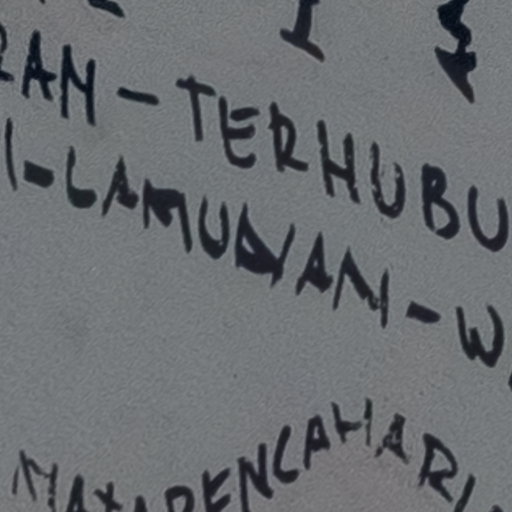 RAN - TERHUBU
I - LAMUNAN - W
MATARENCAHARI